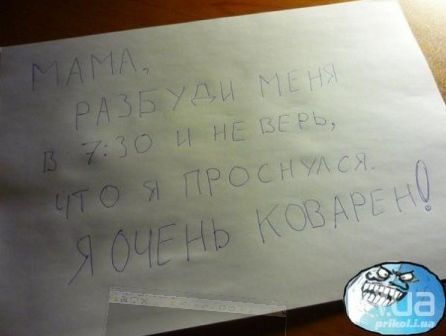 МАМА,
РАЗБУДИ МЕНЯ
В 7:30 И НЕ ВЕРЬ,
ЧТО Я ПРОСНУЛСЯ.
Я ОЧЕНЬ КОВАРЕН!
i.ua
prikol.i.ua